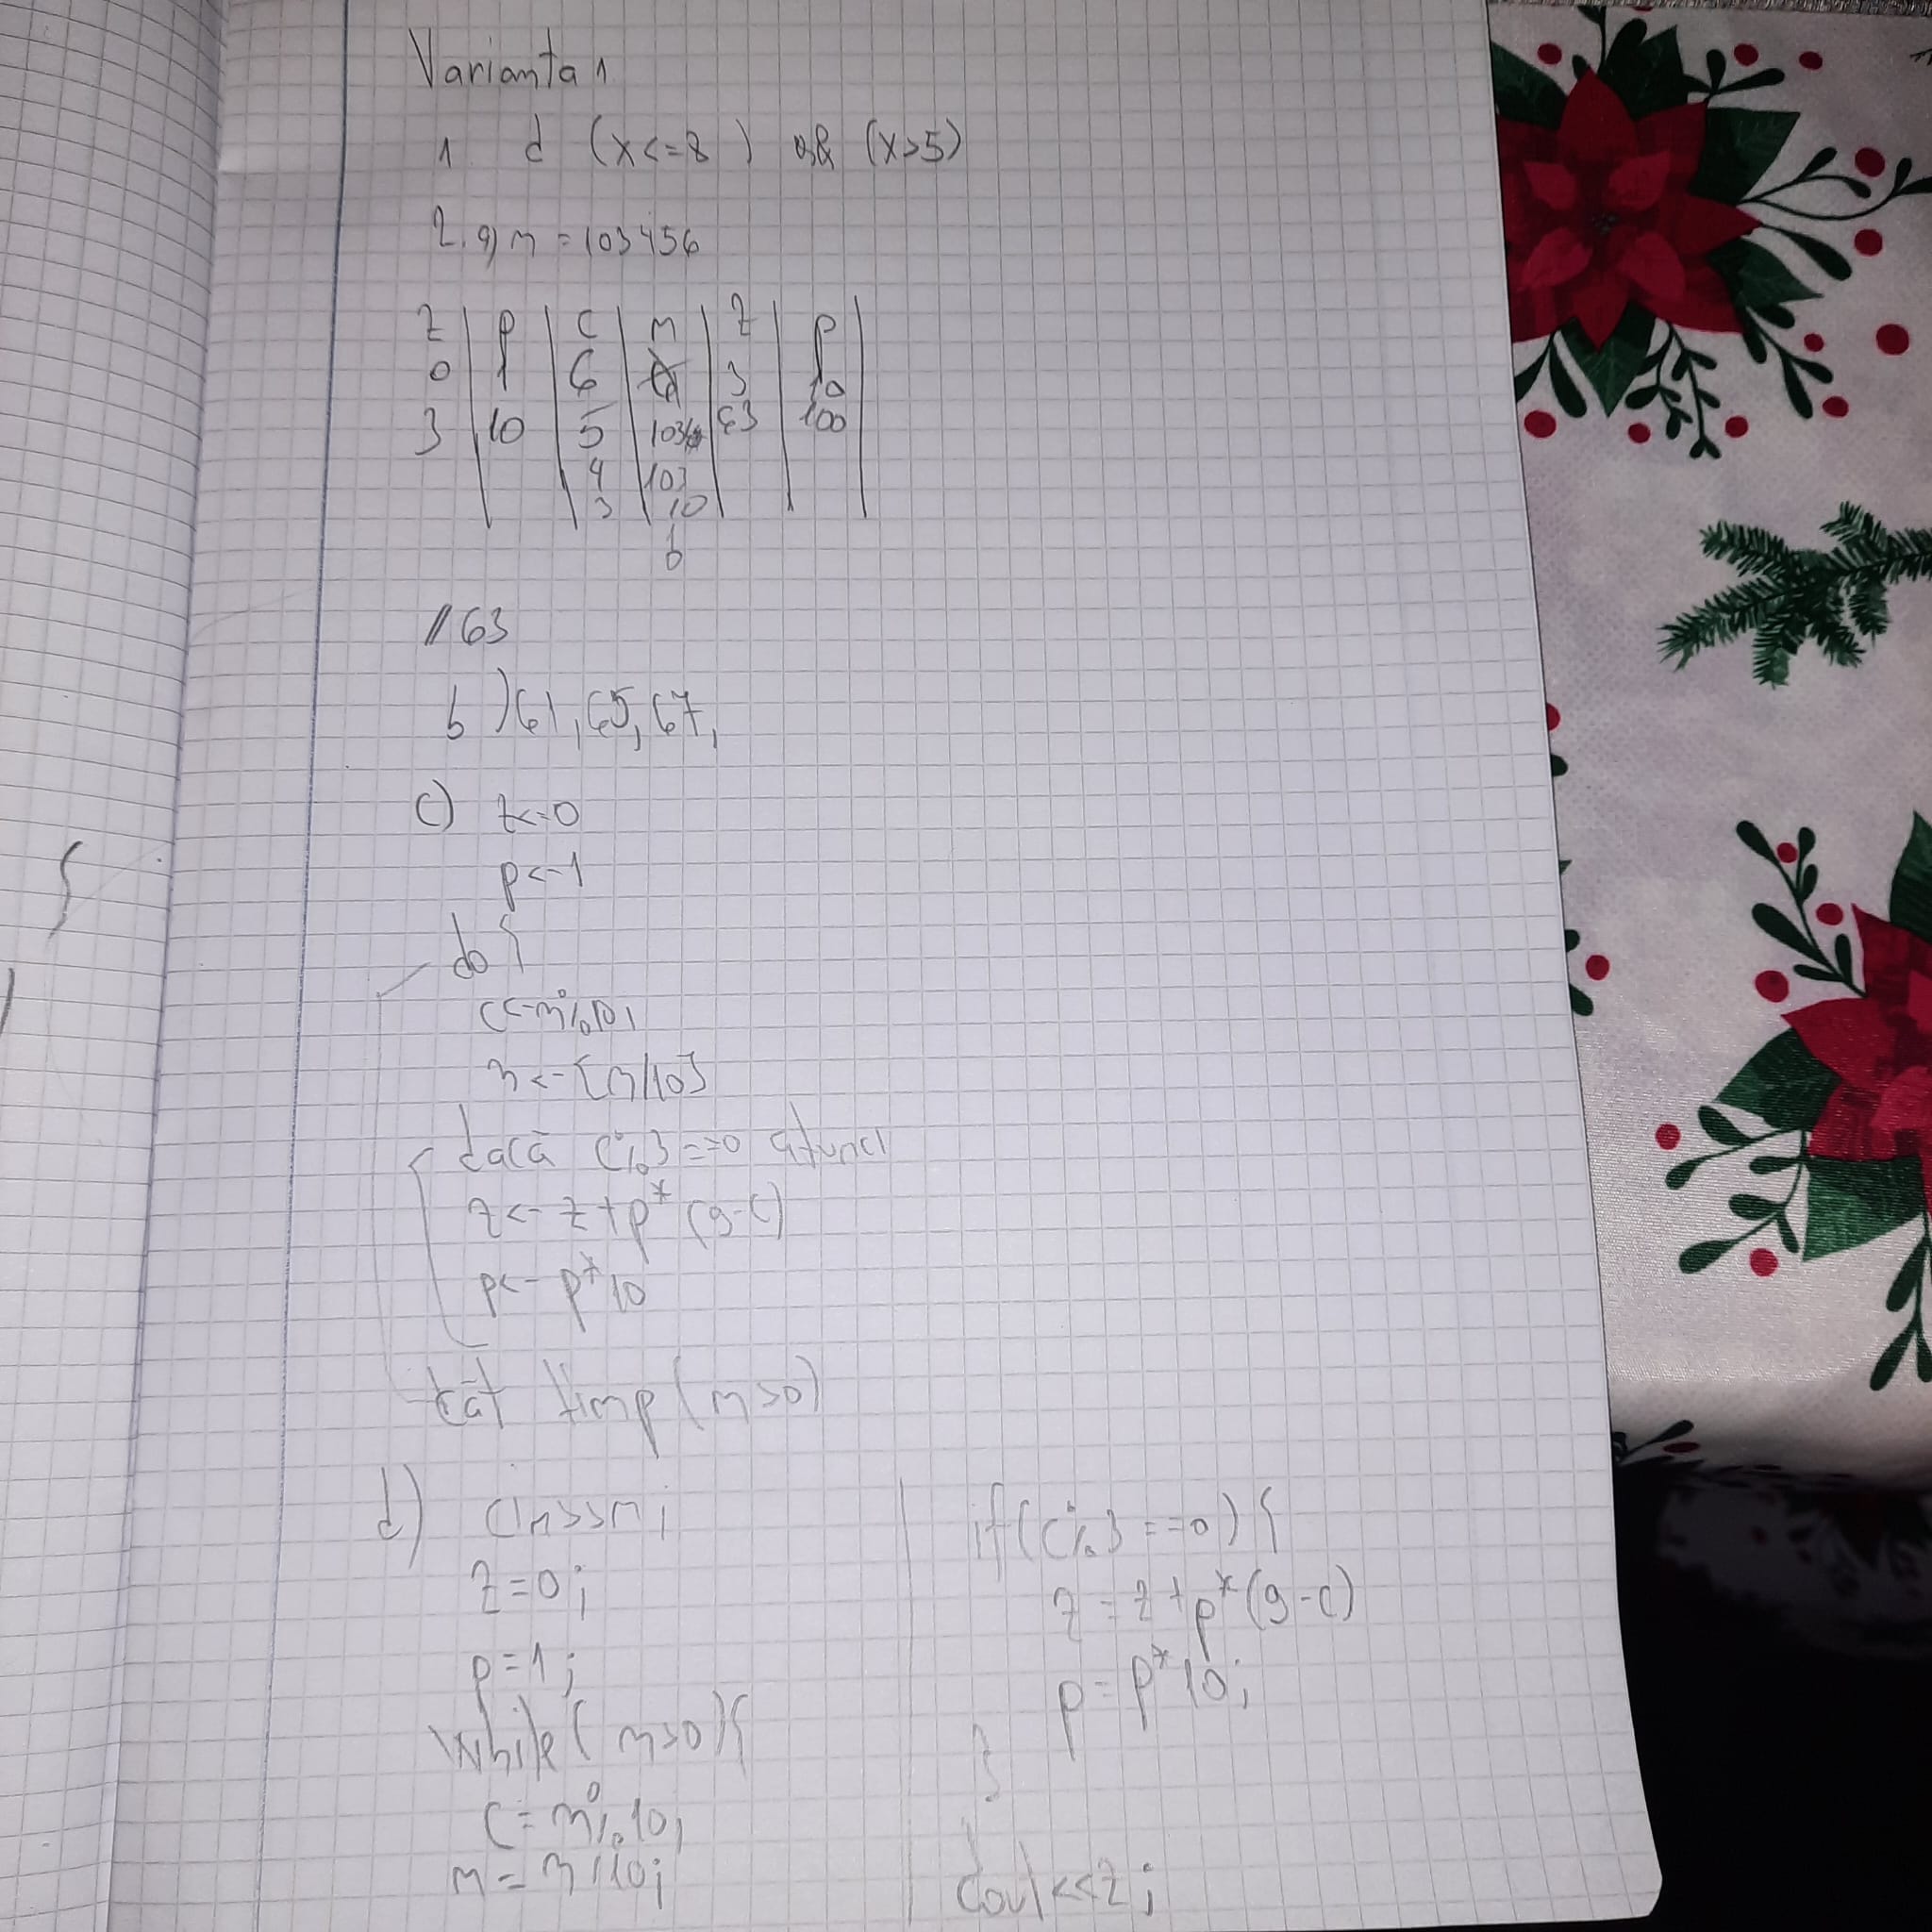 Varianta 1
1 d (x<=8) && (x>5)
2. a) n = 103456
z | p | c | n | z | p |
0 | 1 | 6 | 3 | 10
3 | 10 | 5 | 103 | 63 | 100
4 | 103
3 | 10
// 63
b) 61, 65, 67,
c) z<-0
p<-1
do {
c<-n%10;
n<-[n/10]
dacă c%3==0 atunci
z<- z+p*(9-c)
p<- p*10
cât timp (n>0)
d) cin>>n;
z=0;
p=1;
while(n>0){
c=n%10;
n=n/10;
if(c%3==0){
z=z+p*(9-c)
p=p*10;
}
}
cout<<z;